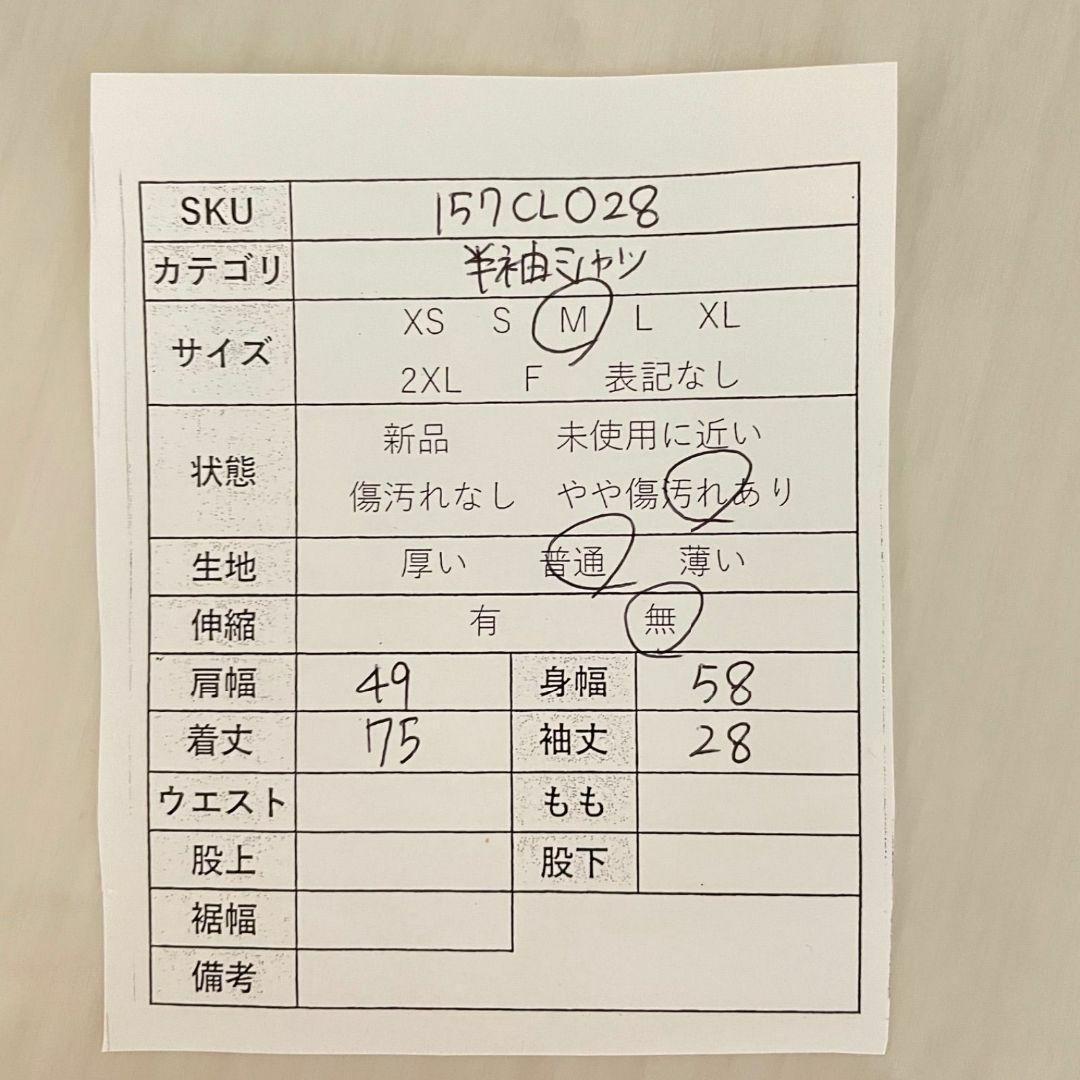 SKU 157CL028
カテゴリ 半袖シャツ
サイズ XS S M L XL
2XL F 表記なし
状態 新品 未使用に近い
傷汚れなし やや傷汚れあり
生地 厚い 普通 薄い
伸縮 有 無
肩幅 49 身幅 58
着丈 75 袖丈 28
ウエスト もも
股上 股下
裾幅
備考